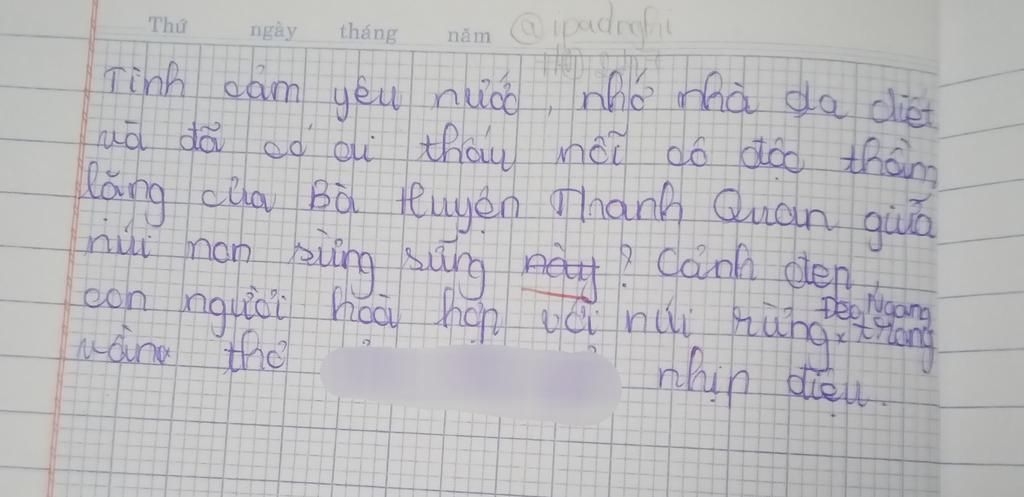 Thứ ngày tháng năm @ipadnghi
Tình cảm yêu nước, nhớ nhà da diết
và đã có ai thấu nỗi cô độc thầm
lặng của Bà Huyện Thanh Quan giữa
núi non sừng sững này? Cảnh đẹp,
con người hoà hợp với núi rừng Đèo Ngang
x trong
vầng thơ nhịp điệu.